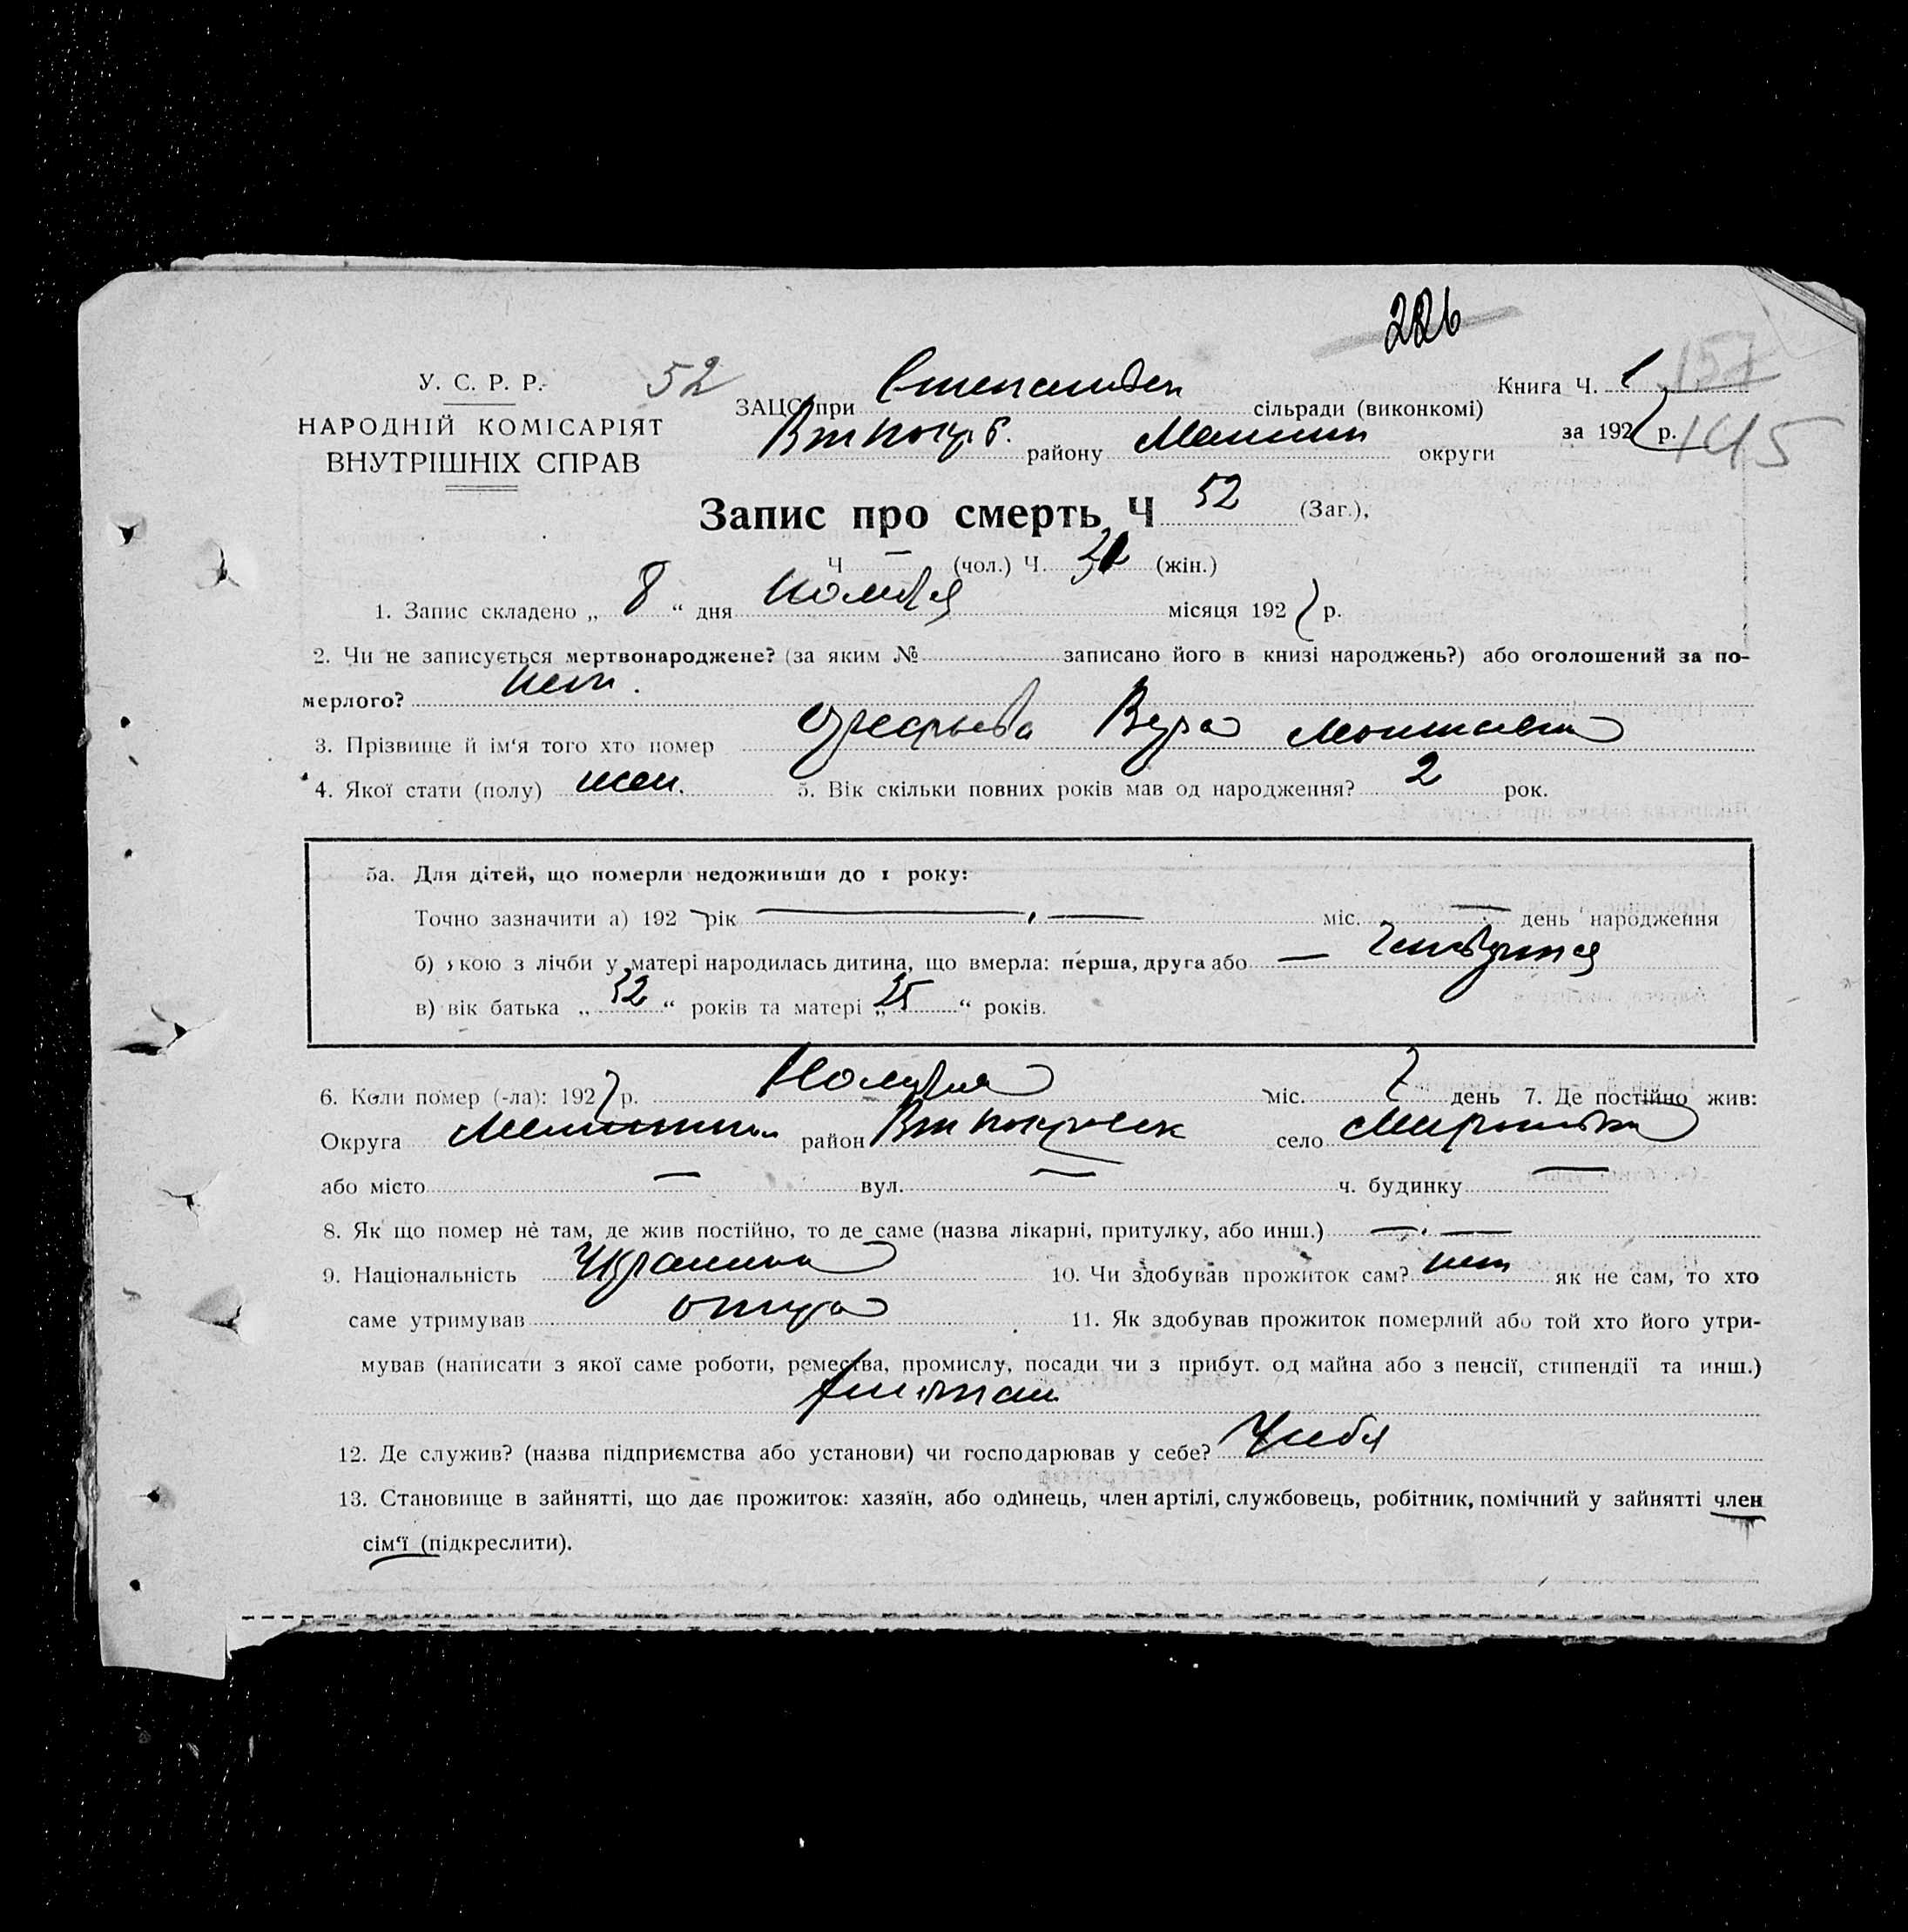 226
У. С. Р. Р.
52
ЗАЦС при сільради (виконкомі)
Книга Ч. 1
157
НАРОДНІЙ КОМІСАРІЯТ
району округи
за 1927 р.
145
ВНУТРІШНІХ СПРАВ
Запис про смерть Ч 52 (Заг.),
Ч — (чол.) Ч. (жін.)
1. Запис складено „ 8 “ дня Ноября місяця 1927 р.
2. Чи не записується мертвонароджене? (за яким № записано його в книзі народжень?) або оголошений за по-
мерлого? нет.
3. Прізвище й ім‘я того хто помер Вера
4. Якої стати (полу) жен. 5. Вік скільки повних років мав од народження? 2 рок.
5а. Для дітей, що померли недоживши до 1 року:
Точно зазначити а) 192 рік — , — міс. — день народження
б) якою з лічби у матері народилась дитина, що вмерла: перша, друга або —
в) вік батька „ 32 “ років та матері „ 25 “ років.
6. Коли помер (-ла): 1927 р. Ноября міс. 7 день 7. Де постійно жив:
Округа район село
або місто — вул. — ч. будинку —
8. Як що помер не там, де жив постійно, то де саме (назва лікарні, притулку, або инш.) — . —
9. Національність 10. Чи здобував прожиток сам? нет як не сам, то хто
саме утримував отца 11. Як здобував прожиток померлий або той хто його утри-
мував (написати з якої саме роботи, ремества, промислу, посади чи з прибут. од майна або з пенсії, стипендії та инш.)
12. Де служив? (назва підприємства або установи) чи господарював у себе? У себя
13. Становище в зайнятті, що дає прожиток: хазяїн, або одинець, член артілі, службовець, робітник, помічний у зайнятті член
сім‘ї (підкреслити).